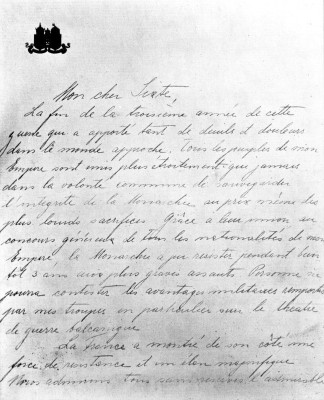 Mon cher Sixte,
La fin de la troisième année de cette
guerre qui a apporté tant de deuils et douleurs
dans le monde approche. Tous les peuples de mon
Empire sont unis plus étroitement que jamais
dans la volonté commune de sauvegarder
l'intégrité de la Monarchie au prix même des
plus lourds sacrifices. Grâce à leur union au
concours généreux de toutes les nationalités de mon
Empire, la Monarchie a pu résister pendant bien
tôt 3 ans aux plus graves assauts. Personne ne
pourra contester les avantages militaires remportés
par mes troupes en particulier sur le théâtre
de guerre balcanique
La France a montré de son côté une
force de résistance et un élan magnifique
Nous admirons tous sans réserves l'admirable